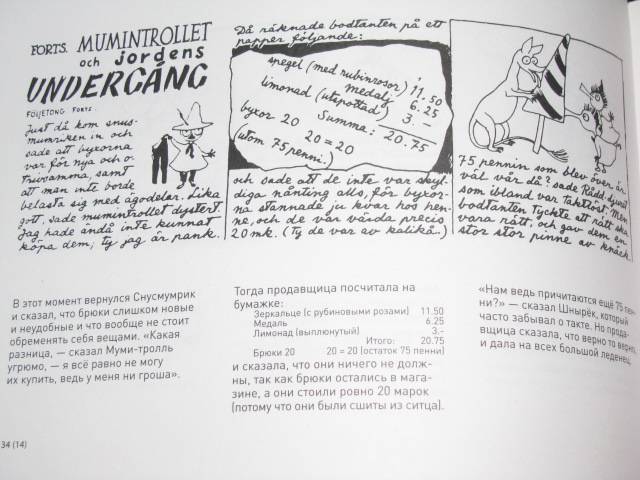 FORTS. MUMINTROLLET
och jordens
UNDERGÅNG
FÖLJETONG FORTS.
Just då kom snus-
mumriken in och
sade att byxorna
var för nya och o-
trivsamma, samt
att man inte borde
belasta sig med ägodelar. Lika
gott, sade mumintrollet dystert.
Jag hade ändå inte kunnat
köpa dem; ty jag är pank.
Då räknade bodtanten på ett
papper följande:
spegel (med rubinrosor) 11.50
medalj 6.25
limonad (utspottad) 3.-
Summa: 20.75
byxor 20 20=20
(utom 75 penni.)
och sade att de inte var skyl-
diga nånting alls, för byxor-
na stannade ju kvar hos hen-
ne, och de var värda precis
20 mk. (Ty de var av kalikå.)
75 pennin som blev över är
väl vår då? sade Rådd-djuret
som ibland var taktlöst. Men
bodtanten tyckte att rätt ska
vara rätt, och gav dem en
stor stor pinne av knäck.
В этот момент вернулся Снусмумрик
и сказал, что брюки слишком новые
и неудобные и что вообще не стоит
обременять себя вещами. «Какая
разница, — сказал Муми-тролль
угрюмо, — я всё равно не могу
их купить, ведь у меня ни гроша».
Тогда продавщица посчитала на
бумажке:
Зеркальце (с рубиновыми розами) 11.50
Медаль 6.25
Лимонад (выплюнутый) 3.-
Итого: 20.75
Брюки 20 20 = 20 (остаток 75 пенни)
и сказала, что они ничего не долж-
ны, так как брюки остались в мага-
зине, а они стоили ровно 20 марок
(потому что они были сшиты из ситца).
«Нам ведь причитаются ещё 75 пен-
ни?» — сказал Шнырёк, который
часто забывал о такте. Но прода-
вщица сказала, что верно то верно,
и дала на всех большой леденец.
34 (14)